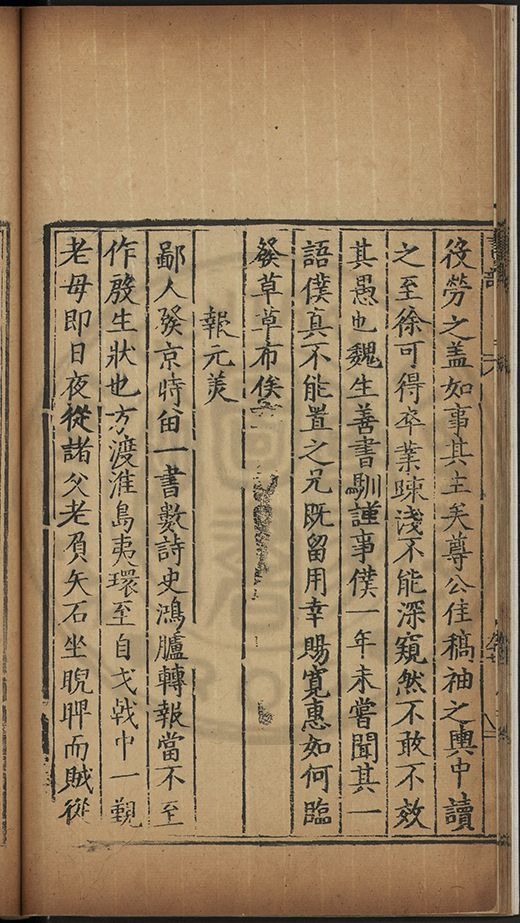 役勞之盖如事其主矣尊公佳稿袖之輿中讀
之至徐可得卒業踈淺不能深窺然不敢不效
其愚也魏生善書馴謹事僕一年未嘗聞其一
語僕真不能置之兄既留用幸賜寬惠如何臨
發草草布俟
報元美
鄙人發京時畱一書數詩史鴻臚轉報當不至
作殷生狀也方渡淮島夷環至自戈戟中一覲
老母即日夜從諸父老負矢石坐睨睥而賊從